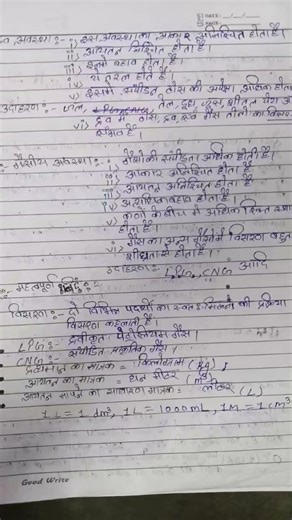 DATE
द्रव अवस्था :- i) इस अवस्था का आकार अनिश्चित होता है।
ii) आयतन निश्चित होता है।
iii) इनमें बहाव होता है।
iv) ये तरल होते हैं।
v) इसमें संपीडन ठोस की अपेक्षा अधिक होता
उदाहरण :- जल, तेल, दूध, जूस, शीतल पेय
द्रव में ठोस, द्रव, गैस तीनों का विसरण
संभव है।
गैसीय अवस्था :- i) गैसों की संपीडता अधिक होती है।
ii) आकार अनिश्चित होता है।
iii) आयतन अनिश्चित होता है
iv) अत्यधिक बहाव होता है।
v) कणों के बीच में अधिक रिक्त स्थान
होता है।
vi) गैस का अन्य गैसों में विसरण बहुत
शीघ्रता से होता है।
उदाहरण :- LPG, CNG आदि
महत्वपूर्ण बिंदु :-
विसरण :- दो विभिन्न पदार्थों का स्वतः मिलने की प्रक्रिया
विसरण कहलाती है।
LPG :- द्रवीकृत पेट्रोलियम गैस।
CNG :- संपीडित प्राकृतिक गैस।
द्रव्यमान का मात्रक = किलोग्राम (kg)
आयतन का मात्रक = घन मीटर (m³)
आयतन मापन का साधारण मात्रक = लीटर (L)
1L = 1 dm³, 1L = 1000mL, 1M = 1cm³
Good Write